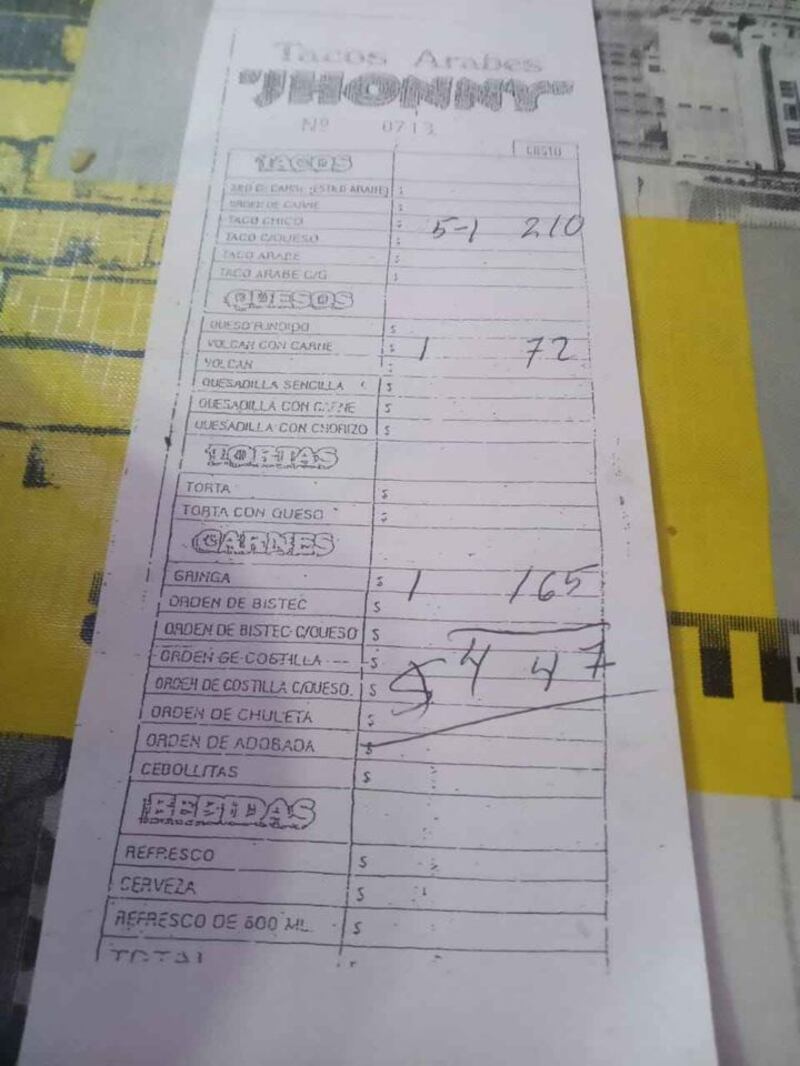 Tacos Arabes
"JHONNY"
Nº 0713
COSTO
TACOS
CARNE (ESTILO ARABE) $
ORDEN DE CARNE $
TACO CHICO $ 5-1 210
TACO C/QUESO $
TACO ARABE $
TACO ARABE C/Q $
QUESOS
QUESO FUNDIDO $
VOLCAN CON CARNE $ 1 72
VOLCAN $
QUESADILLA SENCILLA $
QUESADILLA CON CARNE $
QUESADILLA CON CHORIZO $
TORTAS
TORTA $
TORTA CON QUESO $
CARNES
GRINGA $ 1 165
ORDEN DE BISTEC $
ORDEN DE BISTEC C/QUESO $
ORDEN DE COSTILLA $ $ 447
ORDEN DE COSTILLA C/QUESO $
ORDEN DE CHULETA $
ORDEN DE ADOBADA $
CEBOLLITAS $
BEBIDAS
REFRESCO $
CERVEZA $
REFRESCO DE 600 ML. $
TOTAL